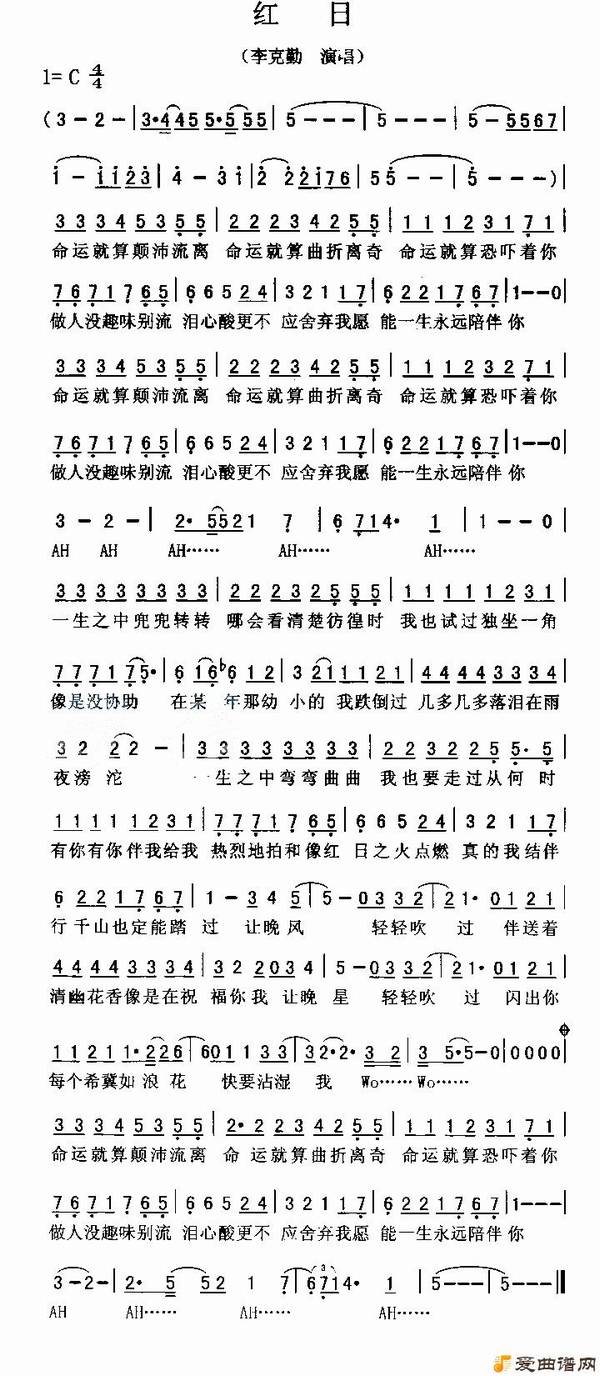 红 日
(李克勤 演唱)
1= C 4/4
(3-2-|3·4455·555|5---|5---|5-5567|
i-ii23|4-3i|2 22i76|55--|5---)|
3 3 3 4 5 3 5 5|2 2 2 3 4 2 5 5|1 1 1 2 3 1 7 1|
命运就算颠沛流离 命运就算曲折离奇 命运就算恐吓着你
7 6 7 1 7 6 5|6 6 5 2 4|3 2 1 1 7|6 2 2 1 7 6 7|1--0|
做人没趣味别流 泪心酸更不 应舍弃我愿 能一生永远陪伴 你
3 3 3 4 5 3 5 5|2 2 2 3 4 2 5 5|1 1 1 2 3 2 7 1|
命运就算颠沛流离 命运就算曲折离奇 命运就算恐吓着你
7 6 7 1 7 6 5|6 6 5 2 4|3 2 1 1 7|6 2 2 1 7 6 7|1--0|
做人没趣味别流 泪心酸更不 应舍弃我愿 能一生永远陪伴 你
3 - 2 -|2· 5521 7|6 714· 1|1--0|
AH AH AH…… AH…… AH……
3 3 3 3 3 3 3 3|2 2 2 3 2 5 5 5|1 1 1 1 1 2 3 1|
一生之中兜兜转转 哪会看清楚彷徨时 我也试过独坐一角
7 7 7 1 7 5·|6 16·♭6 1 2|3 21 1 1 2 1|4 4 4 4 3 3 3 4|
像是没协助 在某 年那幼 小的 我跌倒过 几多几多落泪在雨
3 2 22 -|3 3 3 3 3 3 3 3|2 2 2 3 2 5 5· 5|
夜滂沱 一生之中弯弯曲曲 我也要走过从何 时
1 1 1 1 1 2 3 1|7 7 7 1 7 6 5|6 6 5 2 4|3 2 1 1 7|
有你有你伴我给我 热烈地拍和像红 日之火点燃 真的我结伴
6 2 2 1 7 6 7|1- 3 4 5|5-0332|21· 0121|
行千山也定能踏 过 让晚风 轻轻吹 过 伴送着
4 4 4 4 3 3 3 4|3 2 2034|5-0332|21· 0121|
清幽花香像是在祝 福你我 让晚 星 轻轻吹 过 闪出你
11211·226|6011 33|32·2· 3 2|3 55·5-0|0000|
每个希冀如 浪 花 快要沾湿 我 Wo……Wo……
3 3 3 4 5 3 5 5|2· 2 2 3 4 2 5 5|1 1 1 2 3 1 7 1|
命运就算颠沛流离 命 运就算曲折离奇 命运就算恐吓着你
7 6 7 1 7 6 5|6 6 5 2 4|3 2 1 1 7|6 2 2 1 7 6 7|1---|
做人没趣味别流 泪心酸更不 应舍弃我愿 能一生永远陪伴 你
3-2-|2· 5 5 52 1 7|6714· 1|5---|5---‖
AH AH…… AH…… AH……
爱曲谱网